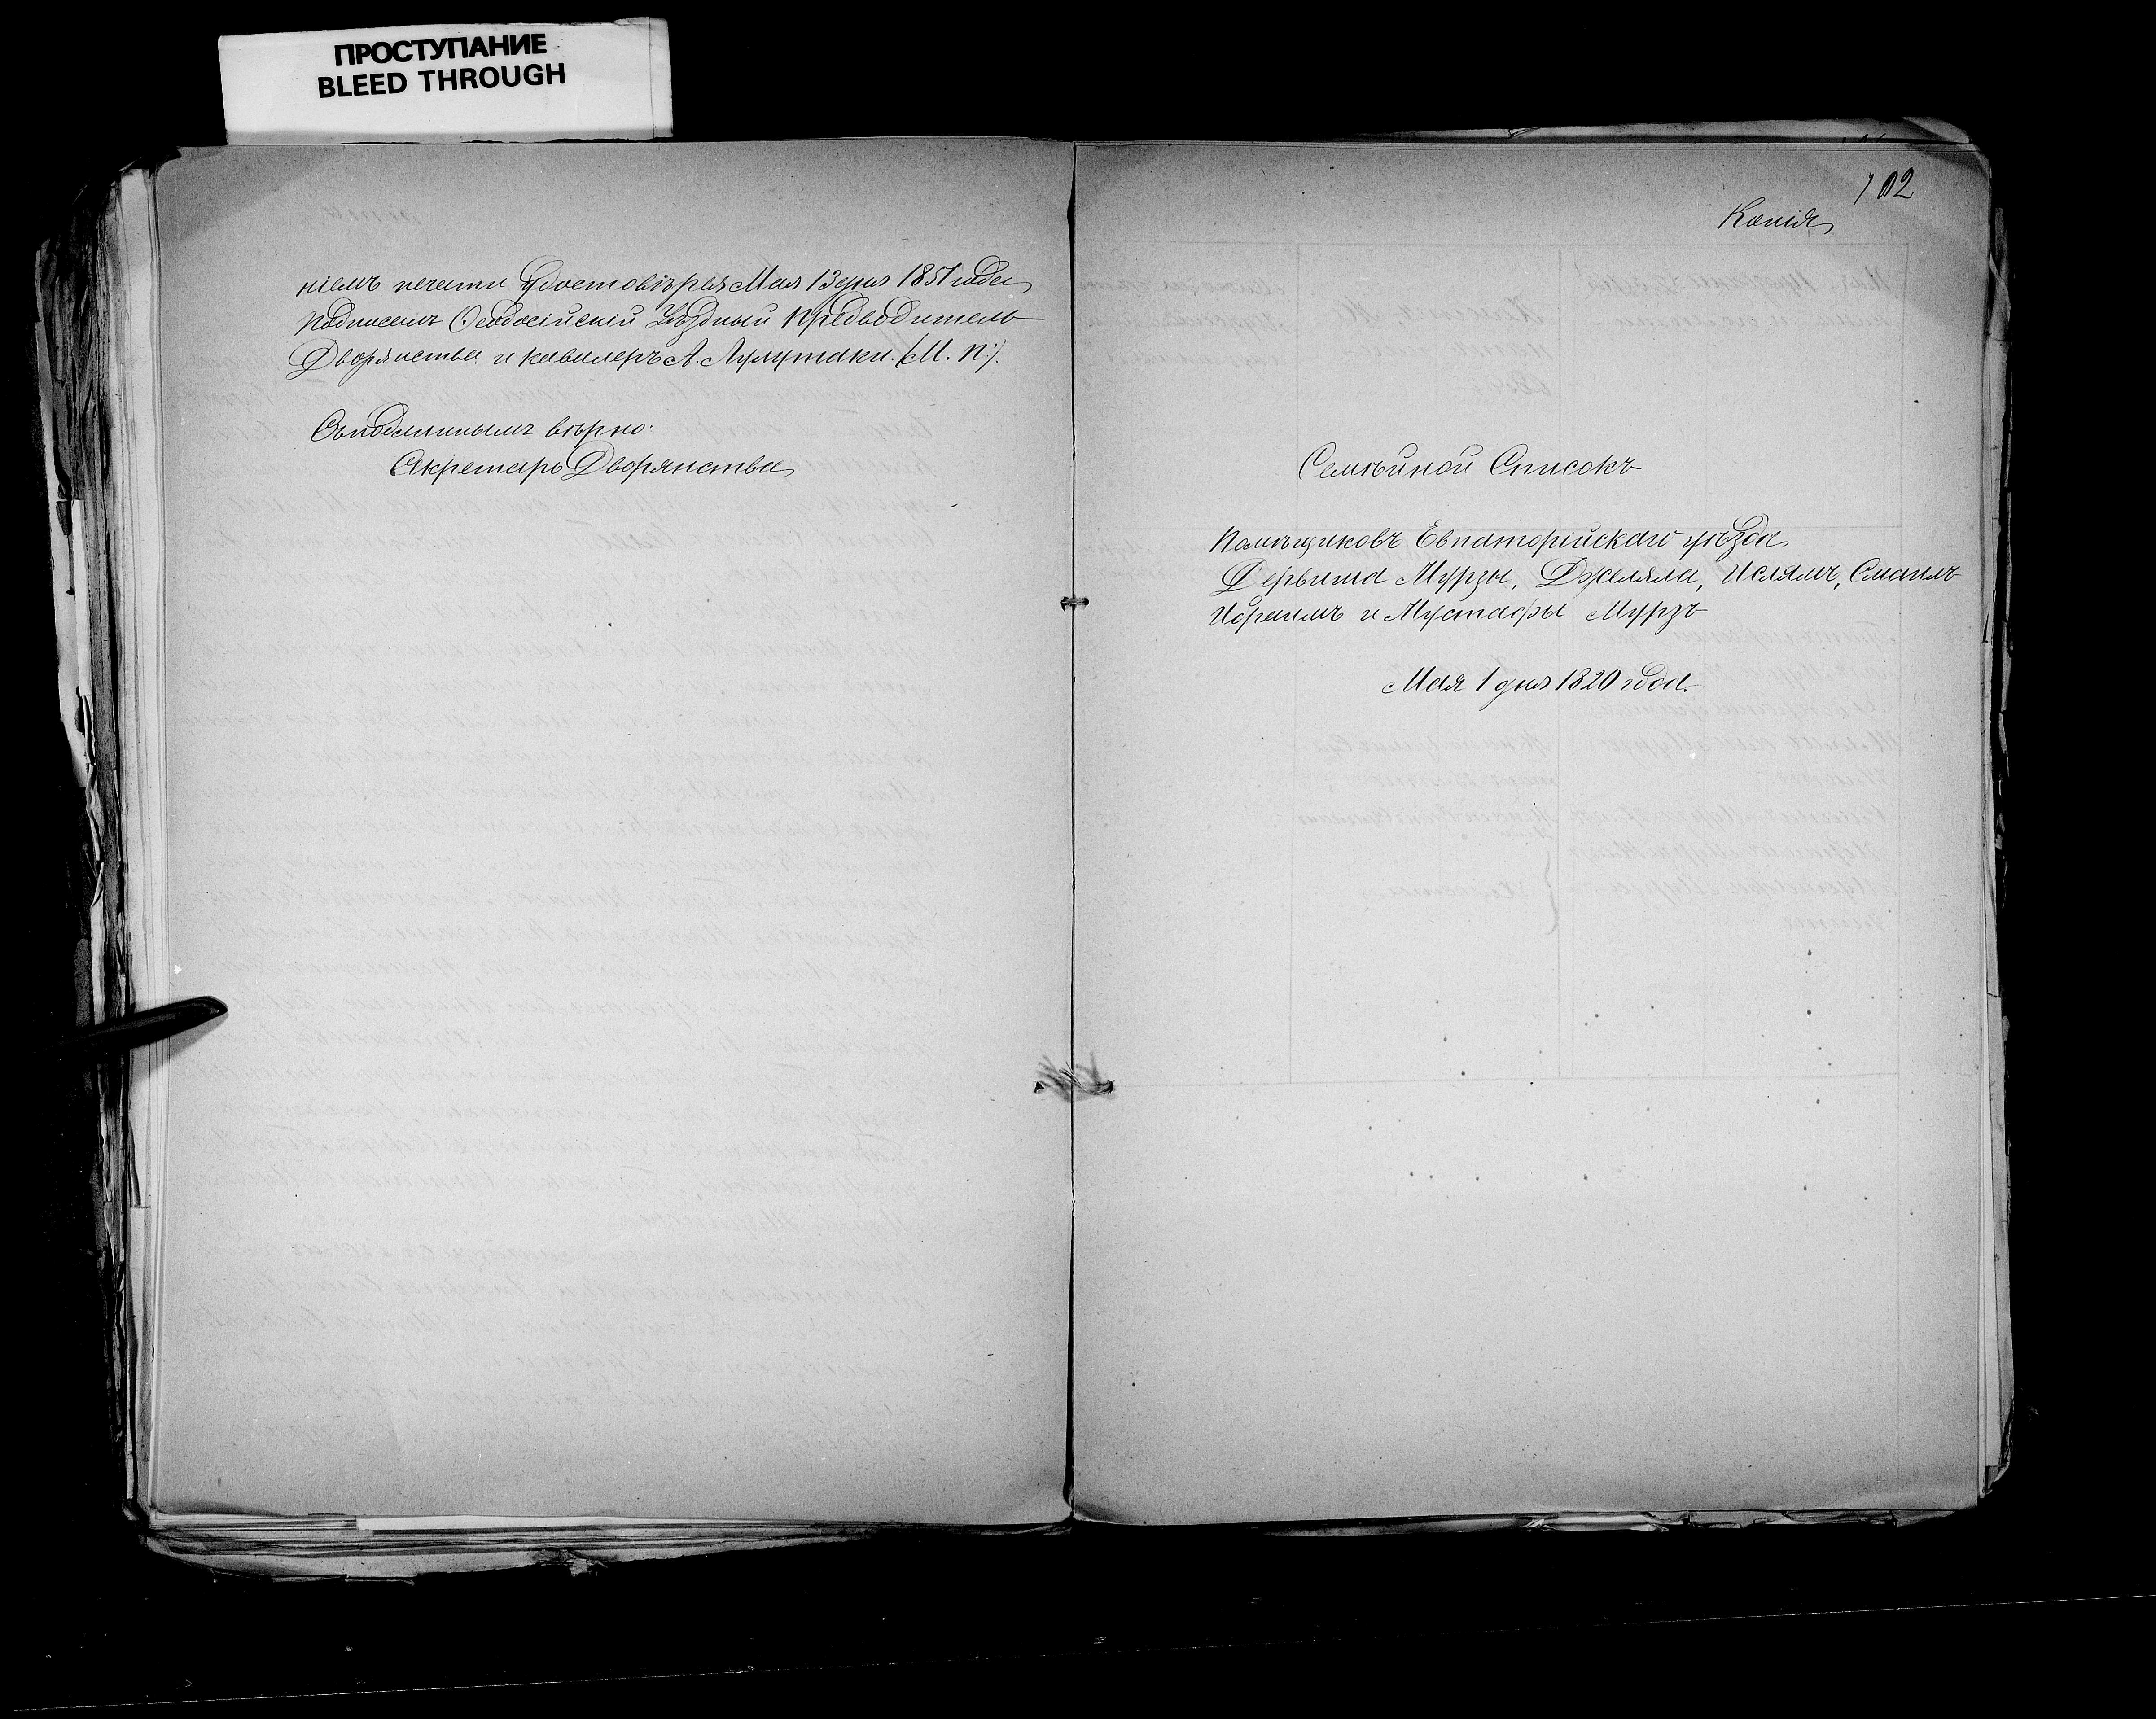 ПРОСТУПАНИЕ
BLEED THROUGH
ніемъ печати Удостовѣряя Мая 13 дня 1851 года
Подписалъ Ѳеодосійскій Уѣздный Предводитель
Дворянства и кавалеръ А. (М. п.).
Съ подлиннымъ вѣрно:
Секретарь Дворянства
102
Копія
Семейной Списокъ
Помѣщиковъ Евпаторійскаго уѣзда
Дервиша Мурзы, Джеляла, Ислямъ, Смаилъ
Ибраимъ и Мустафы Мурзъ
Мая 1 дня 1820 года.